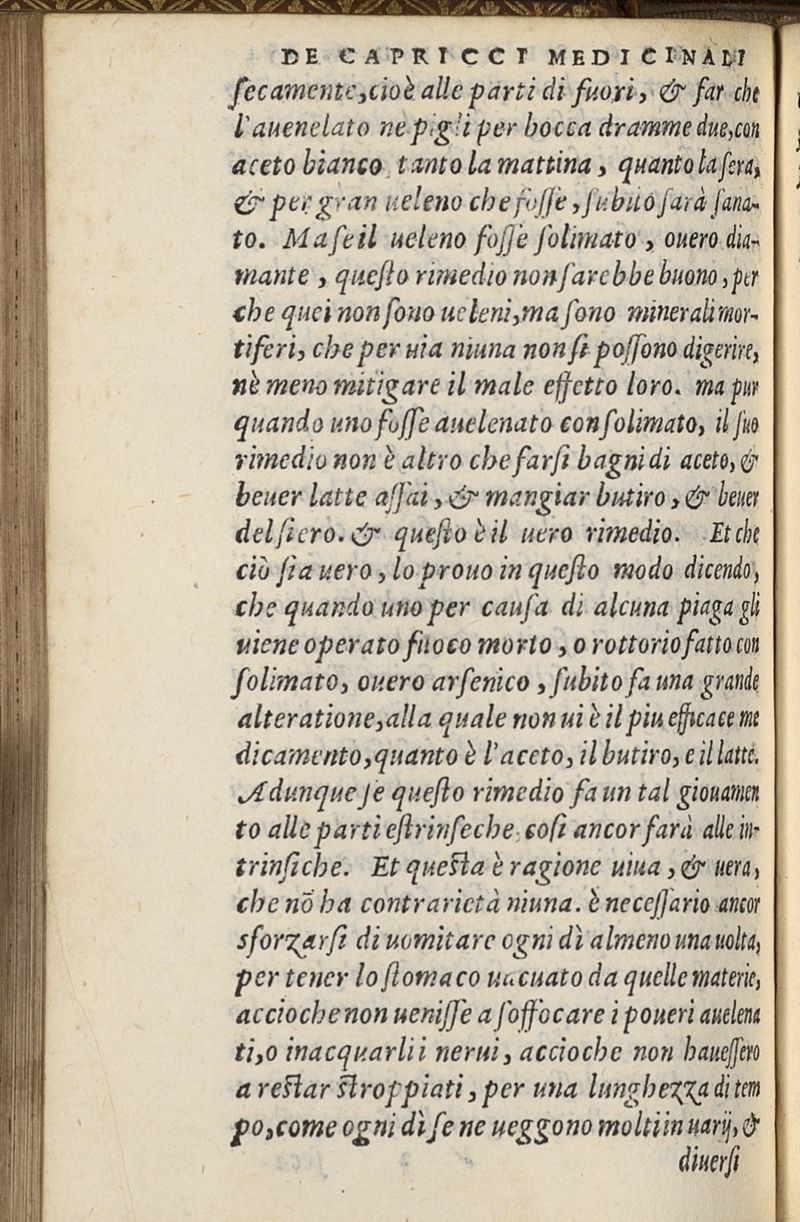 DE CAPRICCI MEDICINALI
ſecamente, cioè alle parti di fuori, & far che
l'auenelato ne pigli per bocca dramme due, con
aceto bianco tanto la mattina, quanto la ſera,
& per gran ueleno che foſſe, ſubito ſarà ſana-
to. Ma ſe il ueleno foſſe ſolimato, ouero dia-
mante, queſto rimedio non ſarebbe buono, per
che quei non ſono ueleni, ma ſono minerali mor-
tiferi, che per uia niuna non ſi poſſono digerire,
nè meno mitigare il male effetto loro. ma pur
quando uno foſſe auelenato con ſolimato, il ſuo
rimedio non è altro che farſi bagni di aceto, &
beuer latte aſſai, & mangiar butiro, & beuer
del ſiero. & queſto è il uero rimedio. Et che
ciò ſia uero, lo prouo in queſto modo dicendo,
che quando uno per cauſa di alcuna piaga gli
uiene operato fuoco morto, o rottorio fatto con
ſolimato, ouero arſenico, ſubito fa una grande
alteratione, alla quale non ui è il piu efficace me
dicamento, quanto è l'aceto, il butiro, e il latte.
Adunque ſe queſto rimedio fa un tal giouamen
to alle parti eſtrinſeche, coſi ancor farà alle in-
trinſiche. Et queſta è ragione uiua, & uera,
che nō ha contrarietà niuna. è neceſſario ancor
sforzarſi di uomitare ogni dì almeno una uolta,
per tener lo ſtomaco uacuato da quelle materie,
accioche non ueniſſe a ſoffocare i poueri auelena
ti, o inacquarli i nerui, accioche non haueſſero
a reſtar ſtroppiati, per una lunghezza di tem
po, come ogni dì ſe ne ueggono molti in uarij, &
diuerſi